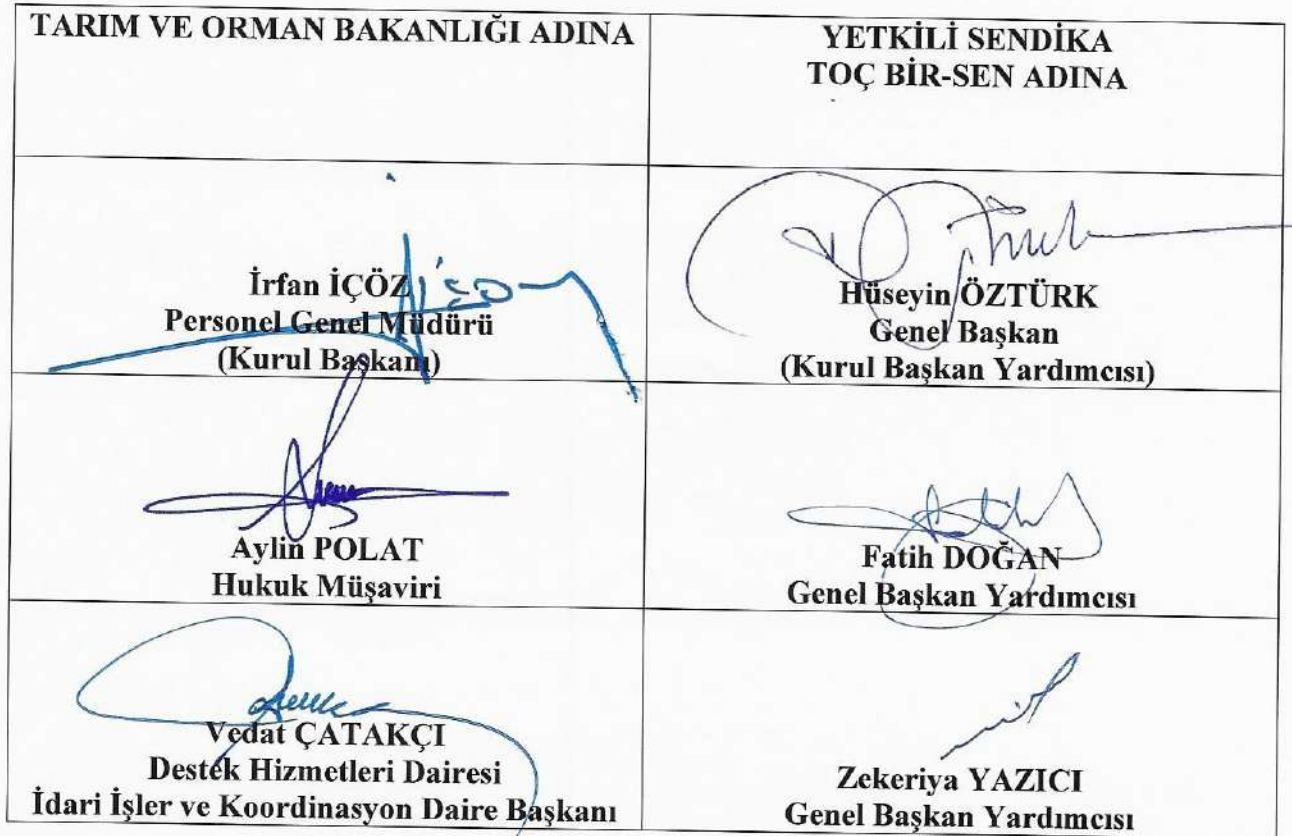 TARIM VE ORMAN BAKANLIĞI ADINA
YETKİLİ SENDİKA
TOÇ BİR-SEN ADINA
İrfan İÇÖZ
Personel Genel Müdürü
(Kurul Başkanı)
Hüseyin ÖZTÜRK
Genel Başkan
(Kurul Başkan Yardımcısı)
Aylin POLAT
Hukuk Müşaviri
Fatih DOĞAN
Genel Başkan Yardımcısı
Vedat ÇATAKÇI
Destek Hizmetleri Dairesi
İdari İşler ve Koordinasyon Daire Başkanı
Zekeriya YAZICI
Genel Başkan Yardımcısı